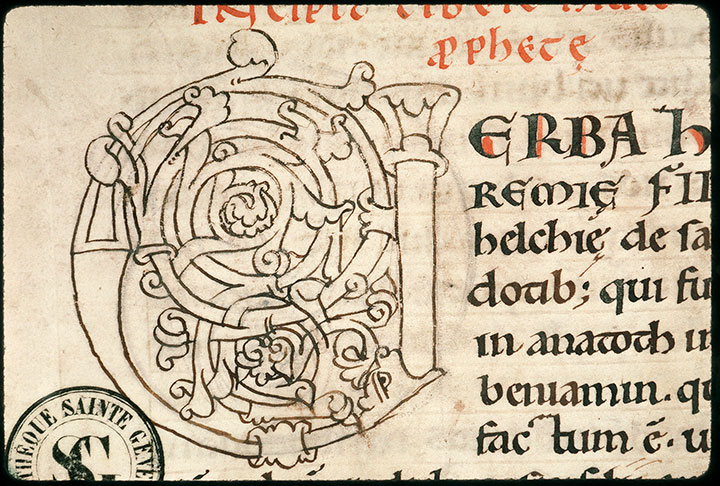 ꝓphetę
ERBA h
REMIĘ FILI
helchię de sa
dotib; qui fu
in anatoth in
beniamin. qu
factum ē. u
THEQUE SAINTE GENE
SG